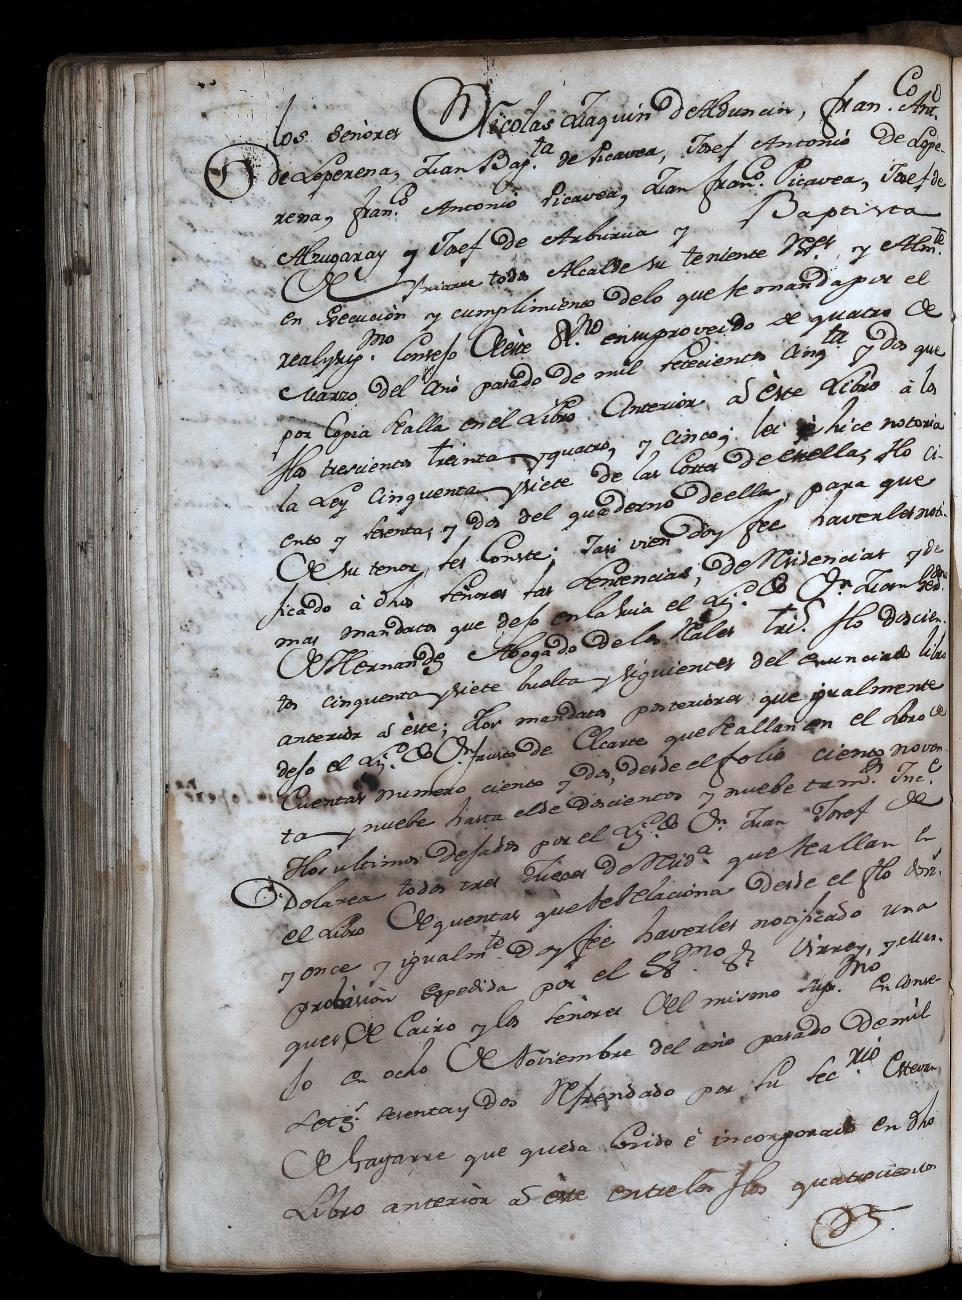 los señores Nicolas Juaquin de Alduncin, fran.co Ant.o
de Leperena, Juan Bap.ta de Picavea, Josef Antonio de Lepe-
rena, fran.co Antonio Picavea, Juan fran.co Picavea, Josef de
Alzugaray y Josef de Arburua y Baptista
De todos Alcalde su teniente Rex.es y Almi.te
en execucion y cumplimiento delo que se manda por el
real y sup.mo Consejo de este R.no en su proveido de quatro de
Marzo del año pasado de mil setecientos cinq.ta y dos que
por Copia se alla en el Libro Anterior a èste Libro à los
flos trescientos treinta y quatro, y cinco; les è hice notoria
la Ley Cinquenta y siete de las Cortes de estella, flo ci-
ento y sesenta, y dos del quaderno de ella, para que
De su tenor, les Conste; Tasi vien doy fee haverles noti-
ficado à dhos señores las sentencias, de Residencias y de
mas mandatos que dejo en la suia el Liz.do Dn. Juan
de Hernand.z Abogado de los Rales Tri.s flo duscien-
tos cinquenta y siete buelta y siguientes del enunciado libro
anterior a èste; Y los mandatos posteriores que igualmente
dejo el Liz.do Dn. fausto de Elcarte que se allan en el Libro de
Cuentas numero ciento y dos, desde el folio ciento noven
ta y nuebe hasta el de doscientos y nuebe tam.en Inc.e
Y los ultimos dejados por el Liz.do Dn. Juan Josef de
Dolarea todos tres Jueces de Resid.a que se allan en
el Libro De quentas que se Relaciona desde el flo
y once y igualm.te doy fee haverles notificado una
probision Expedida por el Ex.mo Sr. Virrey, y Mar-
ques de Cairo y los señores del mismo sup.mo Conse-
jo en ocho De Noviembre del año pasado de mil
setez.s sesenta y dos Refrendado por su sec.rio Estevan
De Gayarre que queda Cosido è incorporado en dho
Libro anterior a èste entre los flos quatrocientos